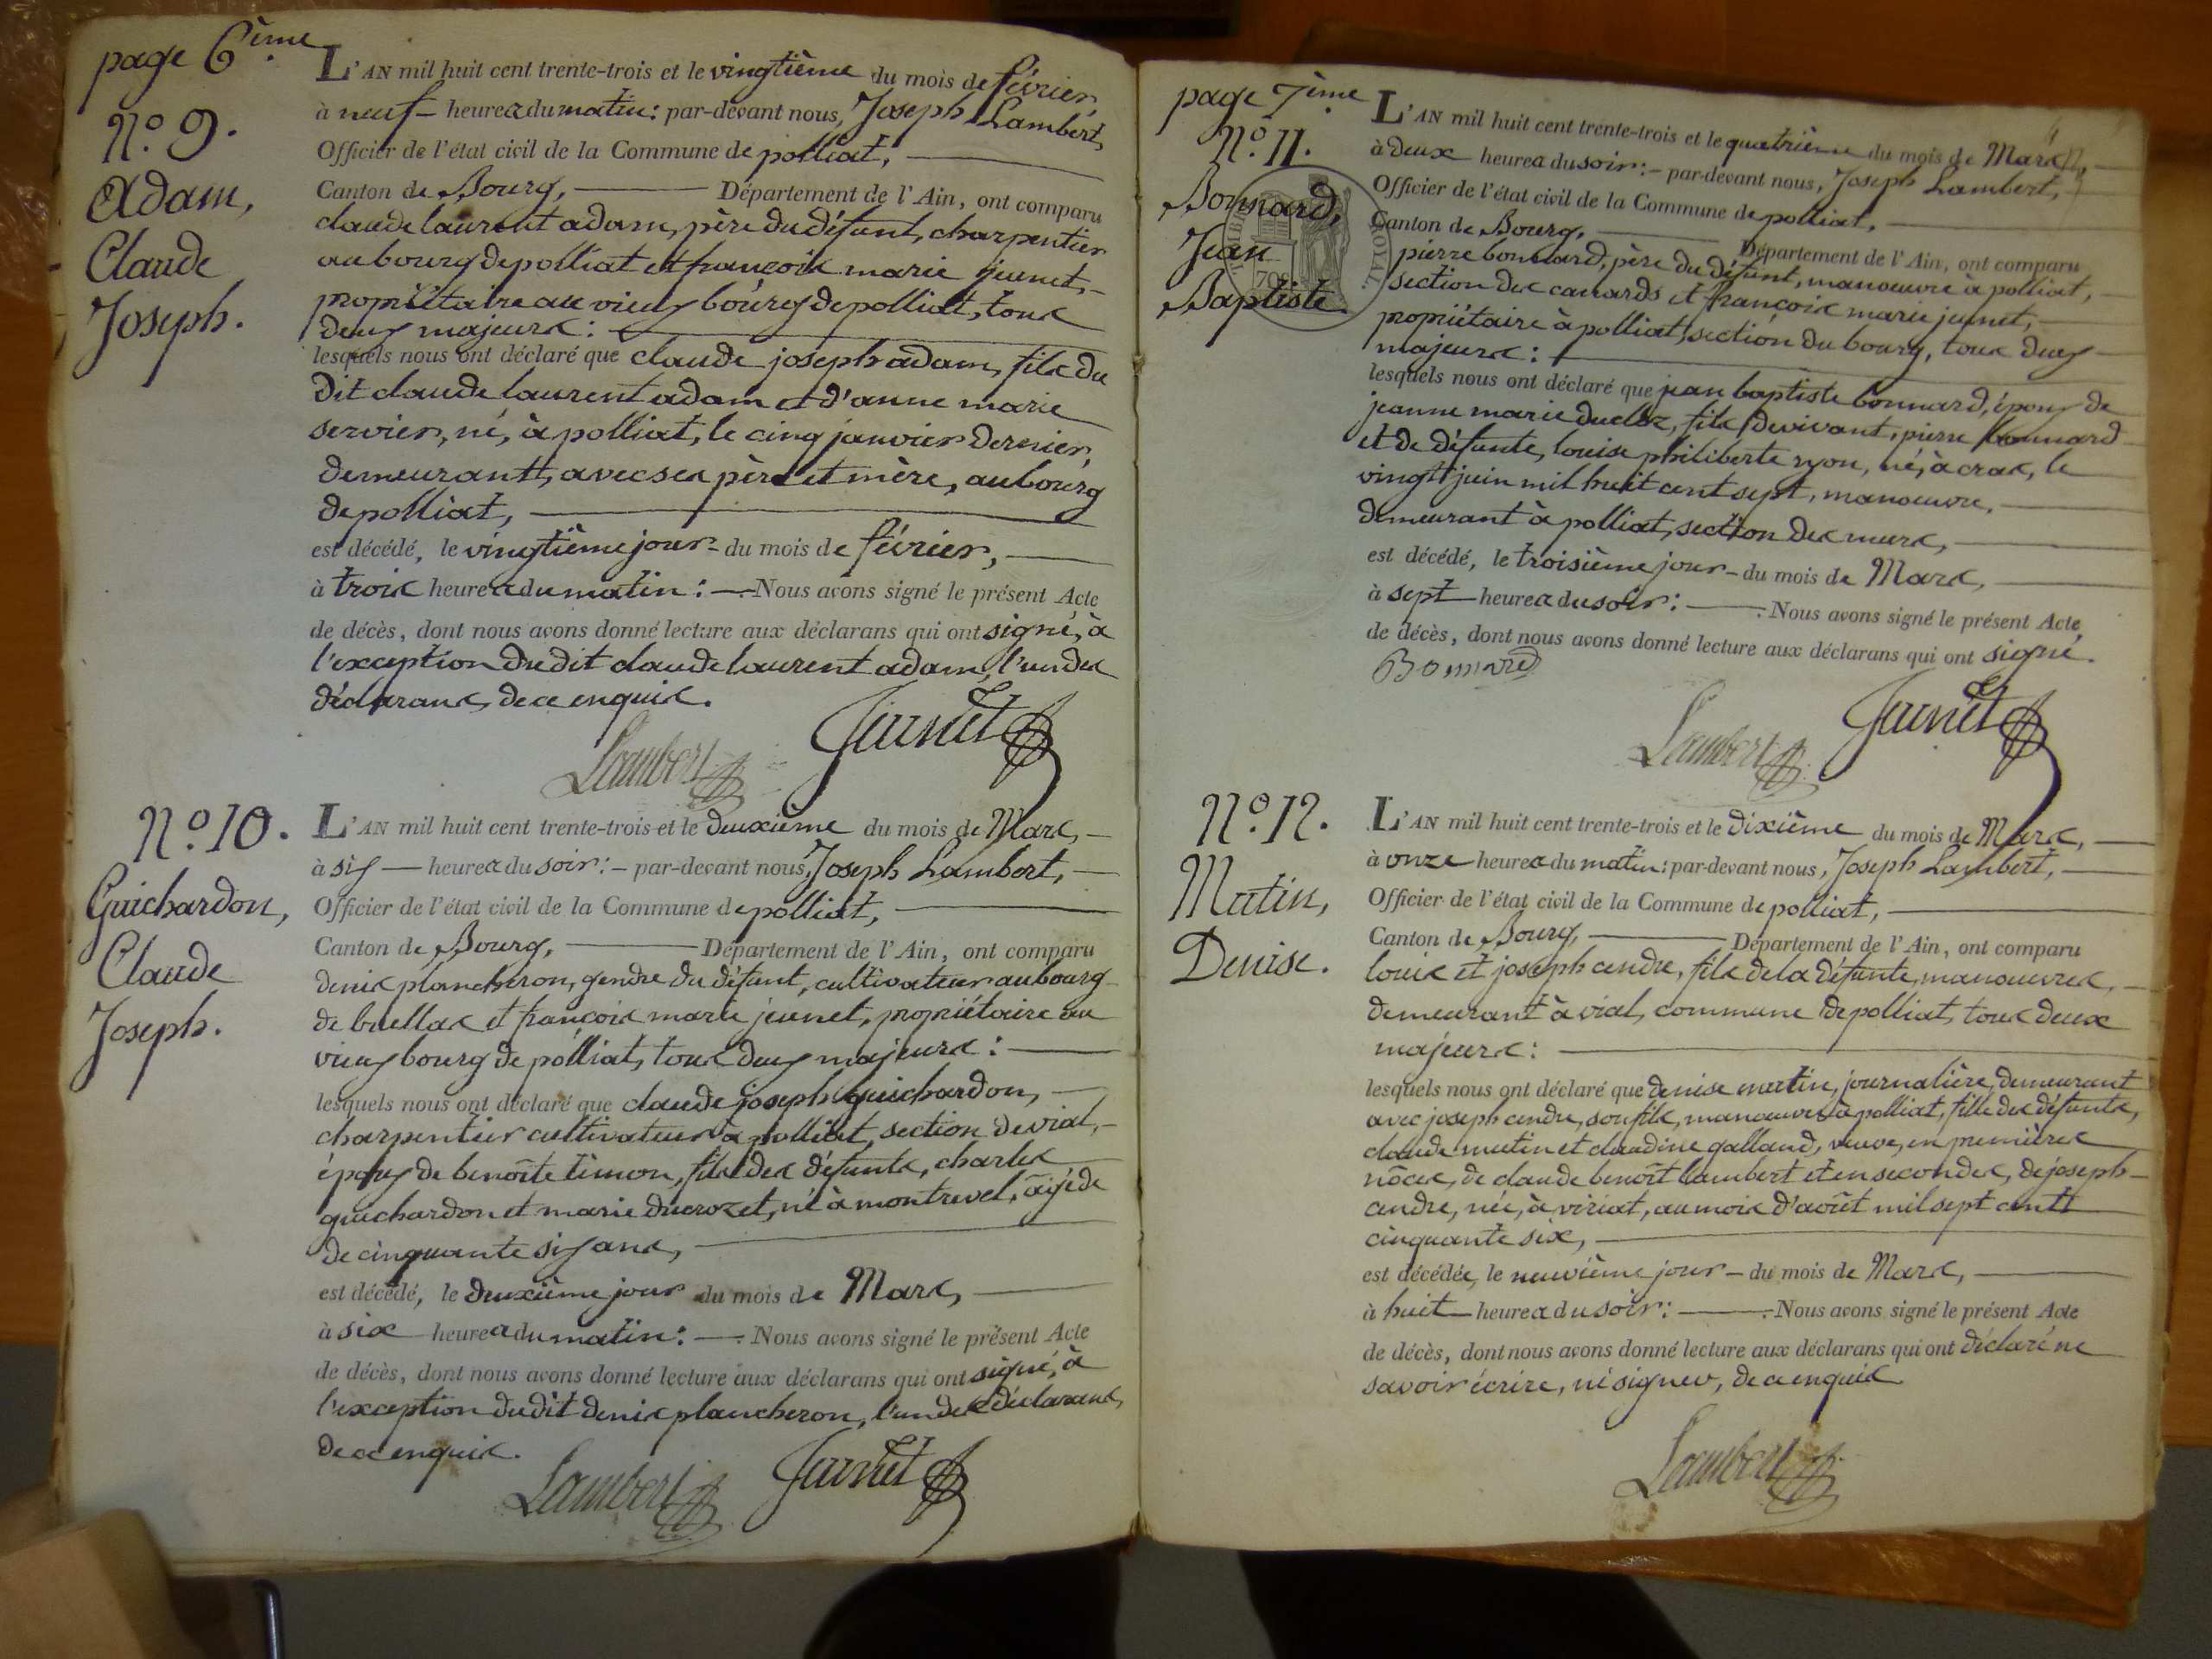 page 6ème.
N.º 9.
Adam,
Claude
Joseph.
L'AN mil huit cent trente-trois et le vingtième du mois de février,
à neuf heures du matin: par-devant nous, Joseph Lambert,
Officier de l'état civil de la Commune de polliat,
Canton de Bourg, Département de l'Ain, ont comparu
claude laurent adam, père du défunt, charpentier
au bourg de polliat et françois marie jeunet,
propriétaire au vieux bourg de polliat, tous
deux majeurs:
lesquels nous ont déclaré que claude joseph adam, fils du
dit claude laurent adam et d'anne marie
servier, né, à polliat, le cinq janvier dernier,
demeurantt, avec ses père et mère, au bourg
de polliat,
est décédé, le vingtième jour du mois de février,
à trois heures du matin: Nous avons signé le présent Acte
de décès, dont nous avons donné lecture aux déclarans qui ont signé, à
l'exception du dit claude laurent adam, l'un des
déclarans, de ce enquis.
Lambert Jeunet
N.º 10.
Guichardon,
Claude
Joseph.
L'AN mil huit cent trente-trois et le deuxième du mois de Mars,
à six heures du soir: par-devant nous, Joseph Lambert,
Officier de l'état civil de la Commune de polliat,
Canton de Bourg, Département de l'Ain, ont comparu
denis plancheron, gendre du défunt, cultivateur au bourg
de buellas et françois marie jeunet, propriétaire au
vieux bourg de polliat, tous deux majeurs:
lesquels nous ont déclaré que claude joseph guichardon,
charpentier cultivateur à polliat, section de vial,
époux de benoîte timon, fils des défunts, charles
guichardon et marie ducrozet, né à montrevel, âgé de
de cinquante six ans,
est décédé, le deuxième jour du mois de Mars,
à six heures du matin: Nous avons signé le présent Acte
de décès, dont nous avons donné lecture aux déclarans qui ont signé, à
l'exception du dit denis plancheron, l'un des déclarans,
de ce enquis.
Lambert Jeunet
page 7ème.
N.º 11.
Bonnard,
Jean
Baptiste
ROYAL
L'AN mil huit cent trente-trois et le quatrième du mois de Mars,
à deux heures du soir: par-devant nous, Joseph Lambert,
Officier de l'état civil de la Commune de polliat,
Canton de Bourg, Département de l'Ain, ont comparu
pierre bonnard, père du défunt, manoeuvre à polliat,
section des canards et françois marie jeunet,
propriétaire à polliat, section du bourg, tous deux
majeurs:
lesquels nous ont déclaré que jean baptiste bonnard, époux de
jeanne marie ducloz, fils de vivant, pierre bonnard
et de défunte, louise philiberte ryon, né, à cras, le
vingt juin mil huit cent sept, manoeuvre,
demeurant à polliat, section des murs,
est décédé, le troisième jour du mois de Mars,
à sept heures du soir: Nous avons signé le présent Acte
de décès, dont nous avons donné lecture aux déclarans qui ont signé.
Bonnard
Lambert Jeunet
N.º 12.
Mutin,
Denise.
L'AN mil huit cent trente-trois et le dixième du mois de Mars,
à onze heures du matin: par-devant nous, Joseph Lambert,
Officier de l'état civil de la Commune de polliat,
Canton de Bourg, Département de l'Ain, ont comparu
louis et joseph cendre, fils de la défunte, manoeuvres,
demeurant à vial, commune de polliat, tous deux
majeurs:
lesquels nous ont déclaré que denise mutin, journalière, demeurant
avec joseph cendre, son fils, manoeuvre à polliat, fille des défunts,
claude mutin et claudine galland, veuve, en premières
nôces, de claude benoît lambert et en secondes, de joseph
cendre, née, à viriat, au mois d'août mil sept centt
cinquante six,
est décédée, le neuvième jour du mois de Mars,
à huit heures du soir: Nous avons signé le présent Acte
de décès, dont nous avons donné lecture aux déclarans qui ont déclaré ne
savoir écrire, ni signer, de ce enquis
Lambert